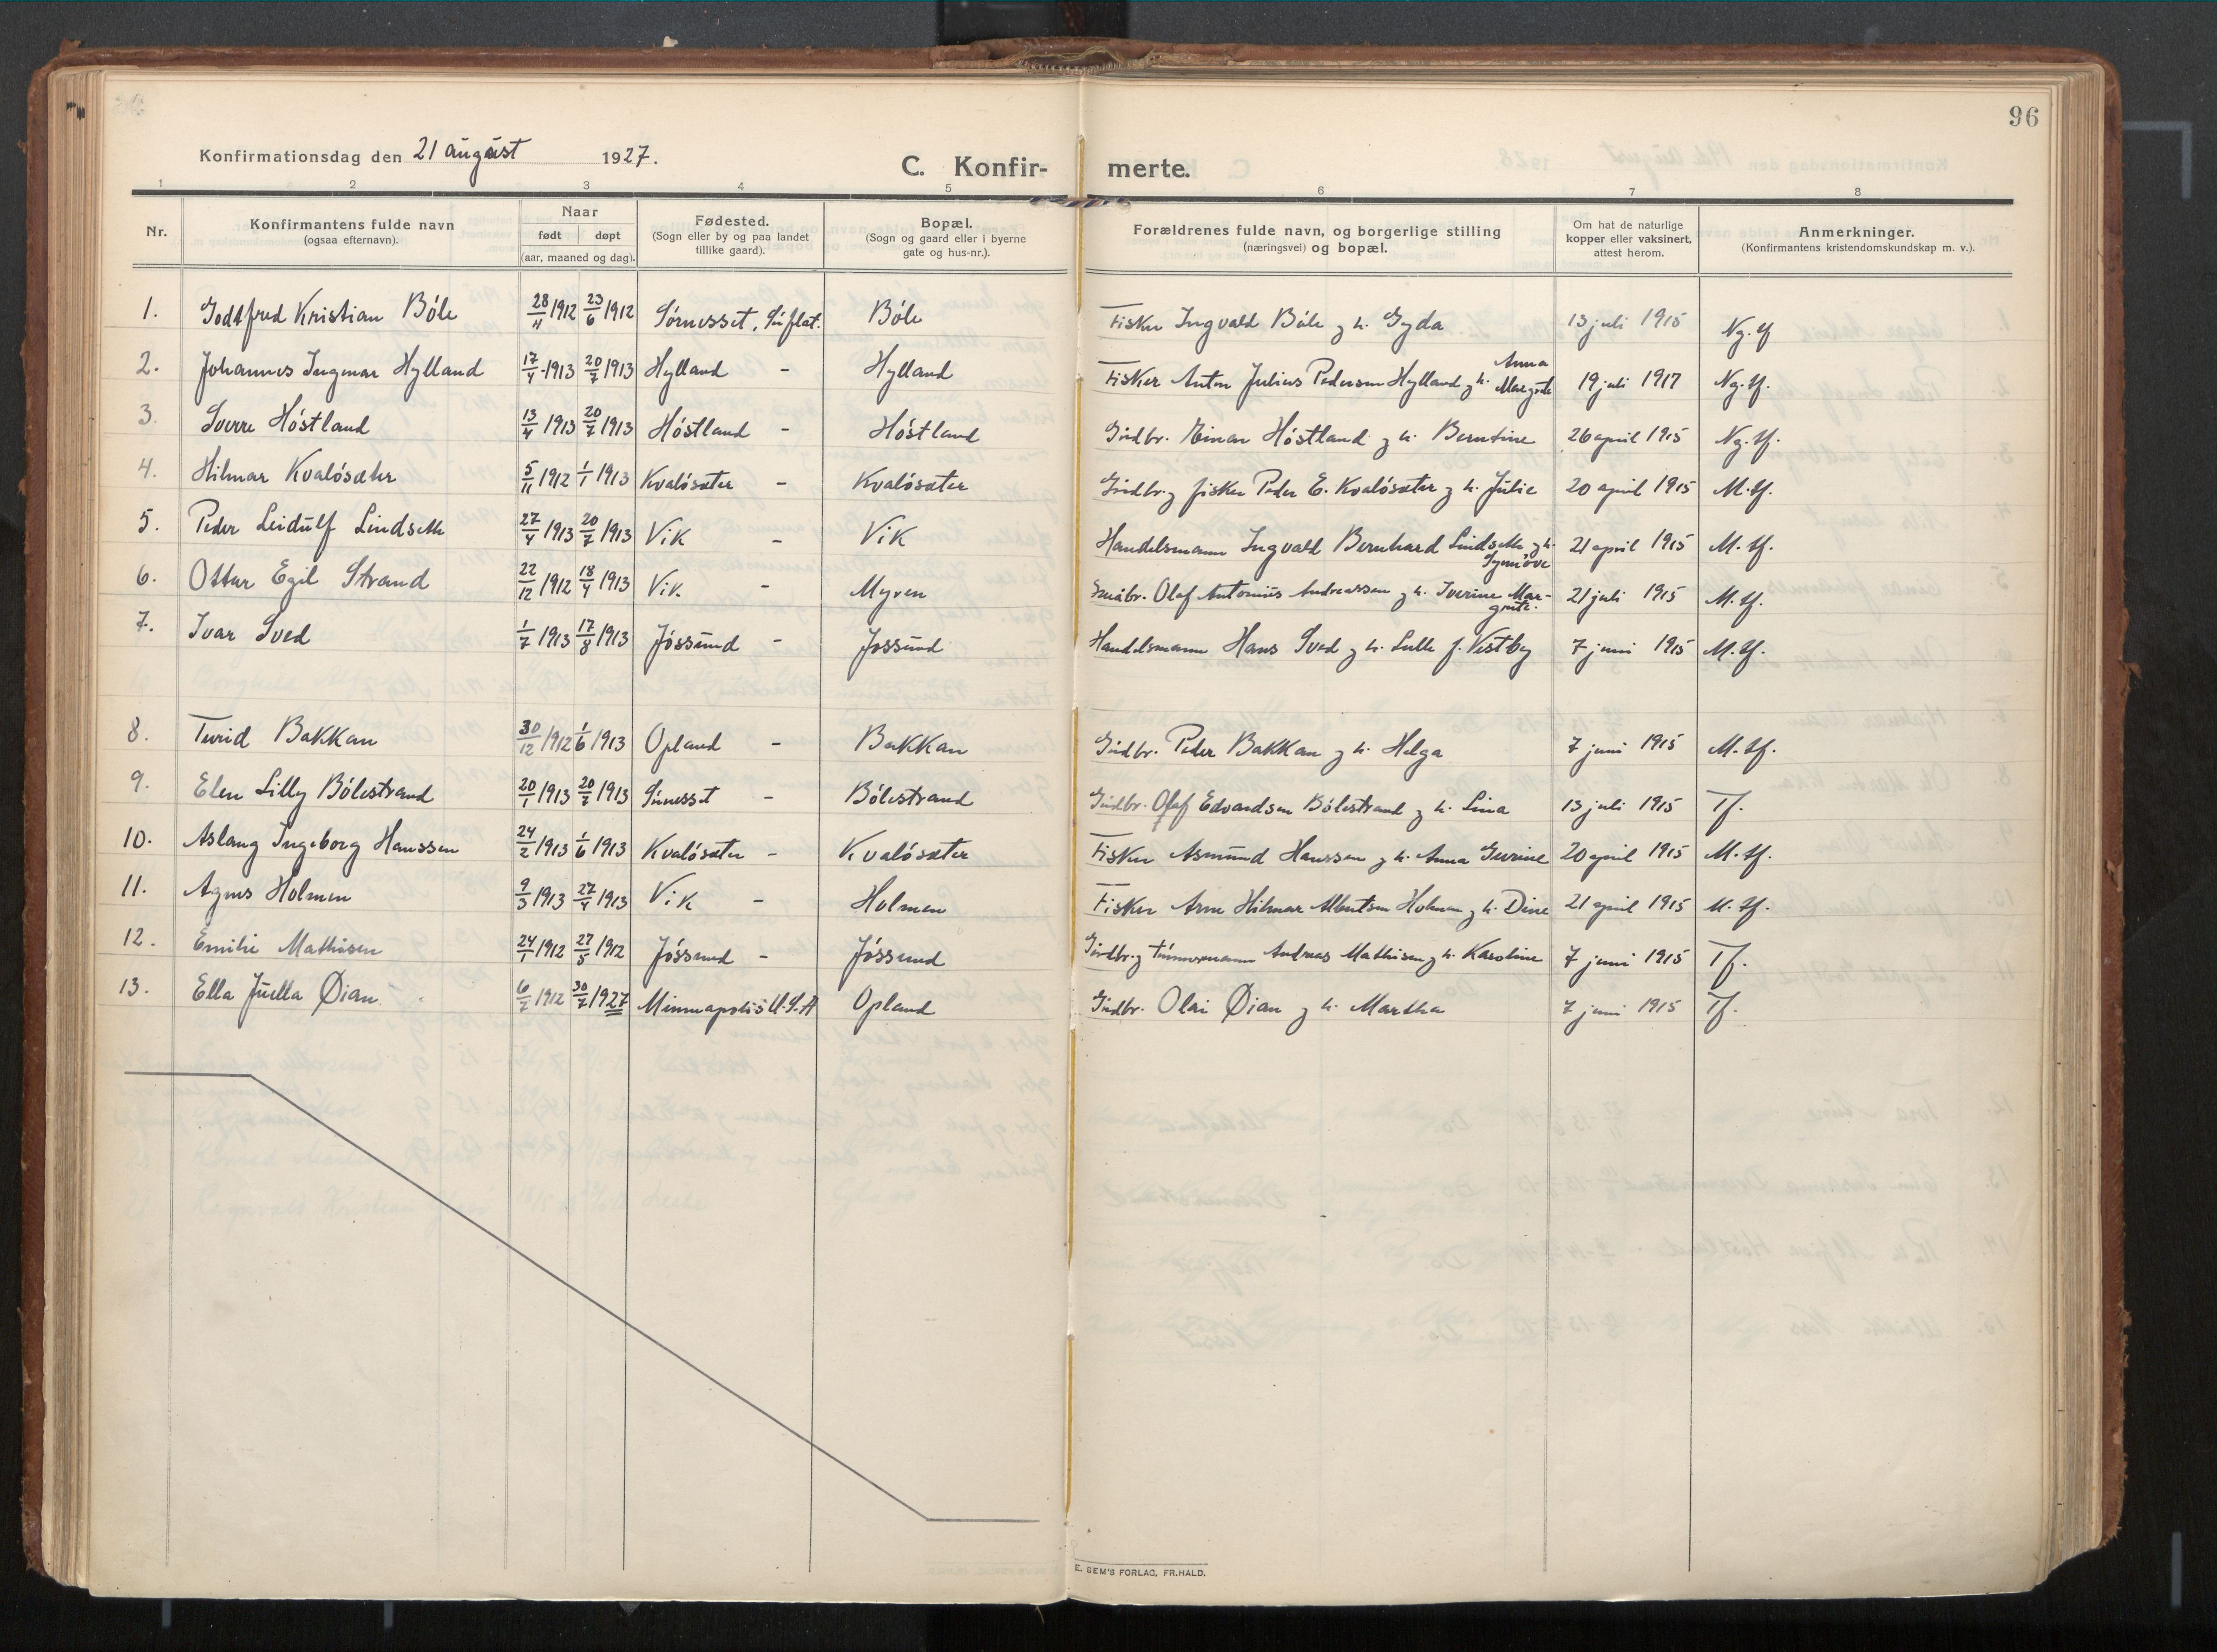 96
Konfirmationsdag den 21 august 1927.
C. Konfir- merte.
1 2 3 4 5 6 7 8
Nr.
Konfirmantens fulde navn
(ogsaa efternavn).
Naar
født døpt
(aar, maaned og dag).
Fødested.
(Sogn eller by og paa landet
tillike gaard).
Bopæl.
(Sogn og gaard eller i byerne
gate og hus-nr.).
Forældrenes fulde navn, og borgerlige stilling
(næringsvei) og bopæl.
Om hat de naturlige
kopper eller vaksinert,
attest herom.
Anmerkninger.
(Konfirmantens kristendomskundskap m. v.).
1. Godtfred Kristian Bóle 28/11 1912 23/6 1912 Sórnesset, Bóle Fisker Ingvald Bóle og h. Gyda 13 juli 1915 Ng. tf
2. Johannes Ingmar Hylland 17/4 1913 20/7 1913 Hylland - Hylland Fisker Anton Julius Pedersen Hylland og h. Anna Margrete 19 juli 1917 Ng. tf.
3. Sverre Hóstland 13/4 1913 20/7 1913 Hóstland - Hóstland Gårdbr. Einar Hóstland og h. Berntine 26 april 1915 Ng. tf.
4. Hilmar Kvalósæter 5/11 1912 1/1 1913 Kvalósæter - Kvalósæter Gårdbr. og fisker Peder E. Kvalósæter og h. Julie 20 april 1915 M. tf.
5. Peder Leidulf Lindseth 27/4 1913 20/7 1913 Vik - Vik Handelsmann Ingvald Bernhard Lindseth og h. Synnóve 21 april 1915 M. tf.
6. Ottar Egil Strand 22/12 1912 18/4 1913 Vik - Myren Småbr. Olaf Antonius Andreassen og h. Iverine Mar-
grete. 21 juli 1915 M. tf.
7. Ivar Sved 1/7 1913 17/8 1913 Jóssund - Jossund Handelsmann Hans Sved og h. Lulle f. Vestby 7 juni 1915 M. tf.
8. Turid Bakkan 30/12 1912 1/6 1913 Opland - Bakkan Gårdbr. Peder Bakkan og h. Helga 7 juni 1915 M. tf.
9. Elen Lilly Bólestrand 20/1 1913 20/7 1913 - Bólestrand Gårdbr. Olaf Edvardsen Bólestrand og h. Lina 13 juli 1915 Tf.
10. Aslaug Ingeborg Hanssen 24/2 1913 1/6 1913 Kvalósæter - Kvalósæter Fisker Asmund Hanssen og h. Anna Gurine 20 april 1915 M. tf.
11. Agnes Holmen 9/3 1913 27/4 1913 Vik - Holmen Fisker Arne Hilmar Albertsen Holmen og h. Dine 21 april 1915 M. tf.
12. Emilie Mathisen 24/1 1912 27/5 1912 Jóssund - Jóssund Gårdbr. og tømmermann Andreas Mathisen og h. Karoline 7 juni 1915 Tf.
13. Ella Juella Øian 6/7 1912 30/7 1927 Minneapolis U.S.A Opland Gårdbr. Olai Øian og h. Martha 7 juni 1915 Tf.
E. SEM'S FORLAG, FR.HALD.